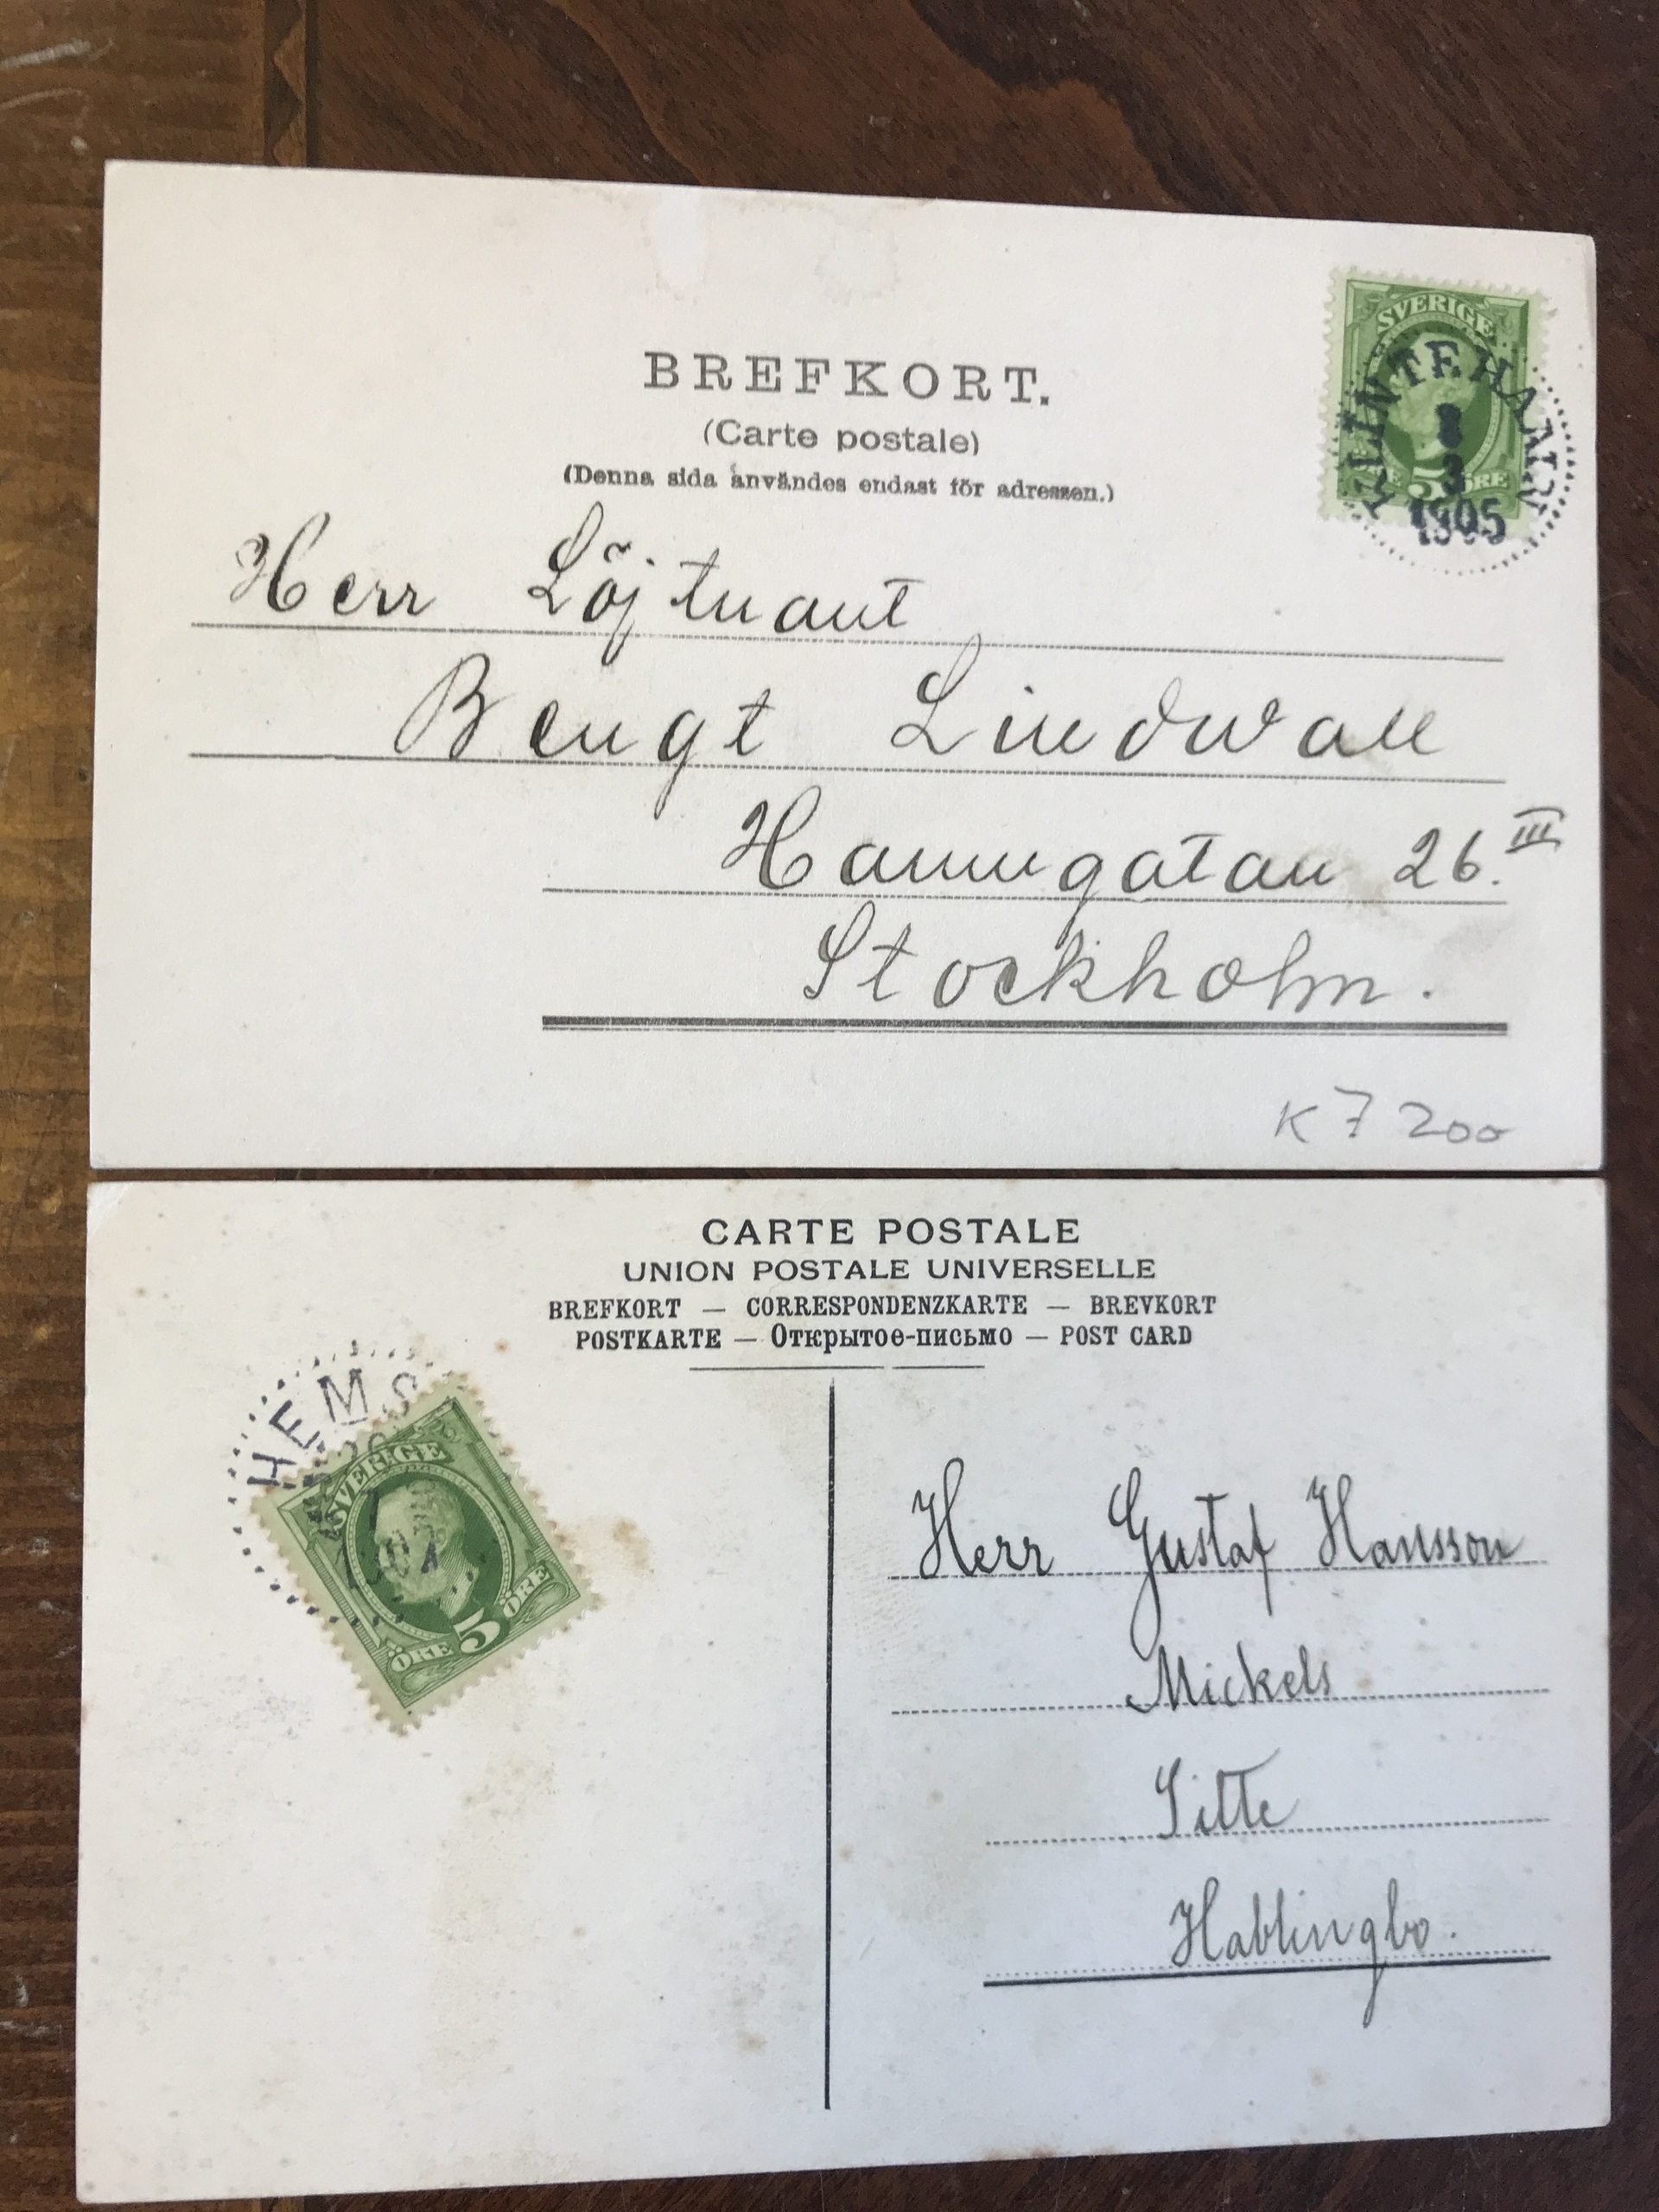 BREFKORT.
(Carte postale)
(Denna sida användes endast för adressen.)
SVERIGE
KLINTEHAMN
3
1905
5 ÖRE
Herr Löjtnant
Bengt Lindwall
Hamngatan 26. III
Stockholm.
K 7 200
CARTE POSTALE
UNION POSTALE UNIVERSELLE
BREFKORT — CORRESPONDENZKARTE — BREVKORT
POSTKARTE — Открытое-письмо — POST CARD
HEMS
SVERIGE
7
ÖRE 5 ÖRE
Herr Gustaf Hansson
Mickels
Sitte
Hablingbo.